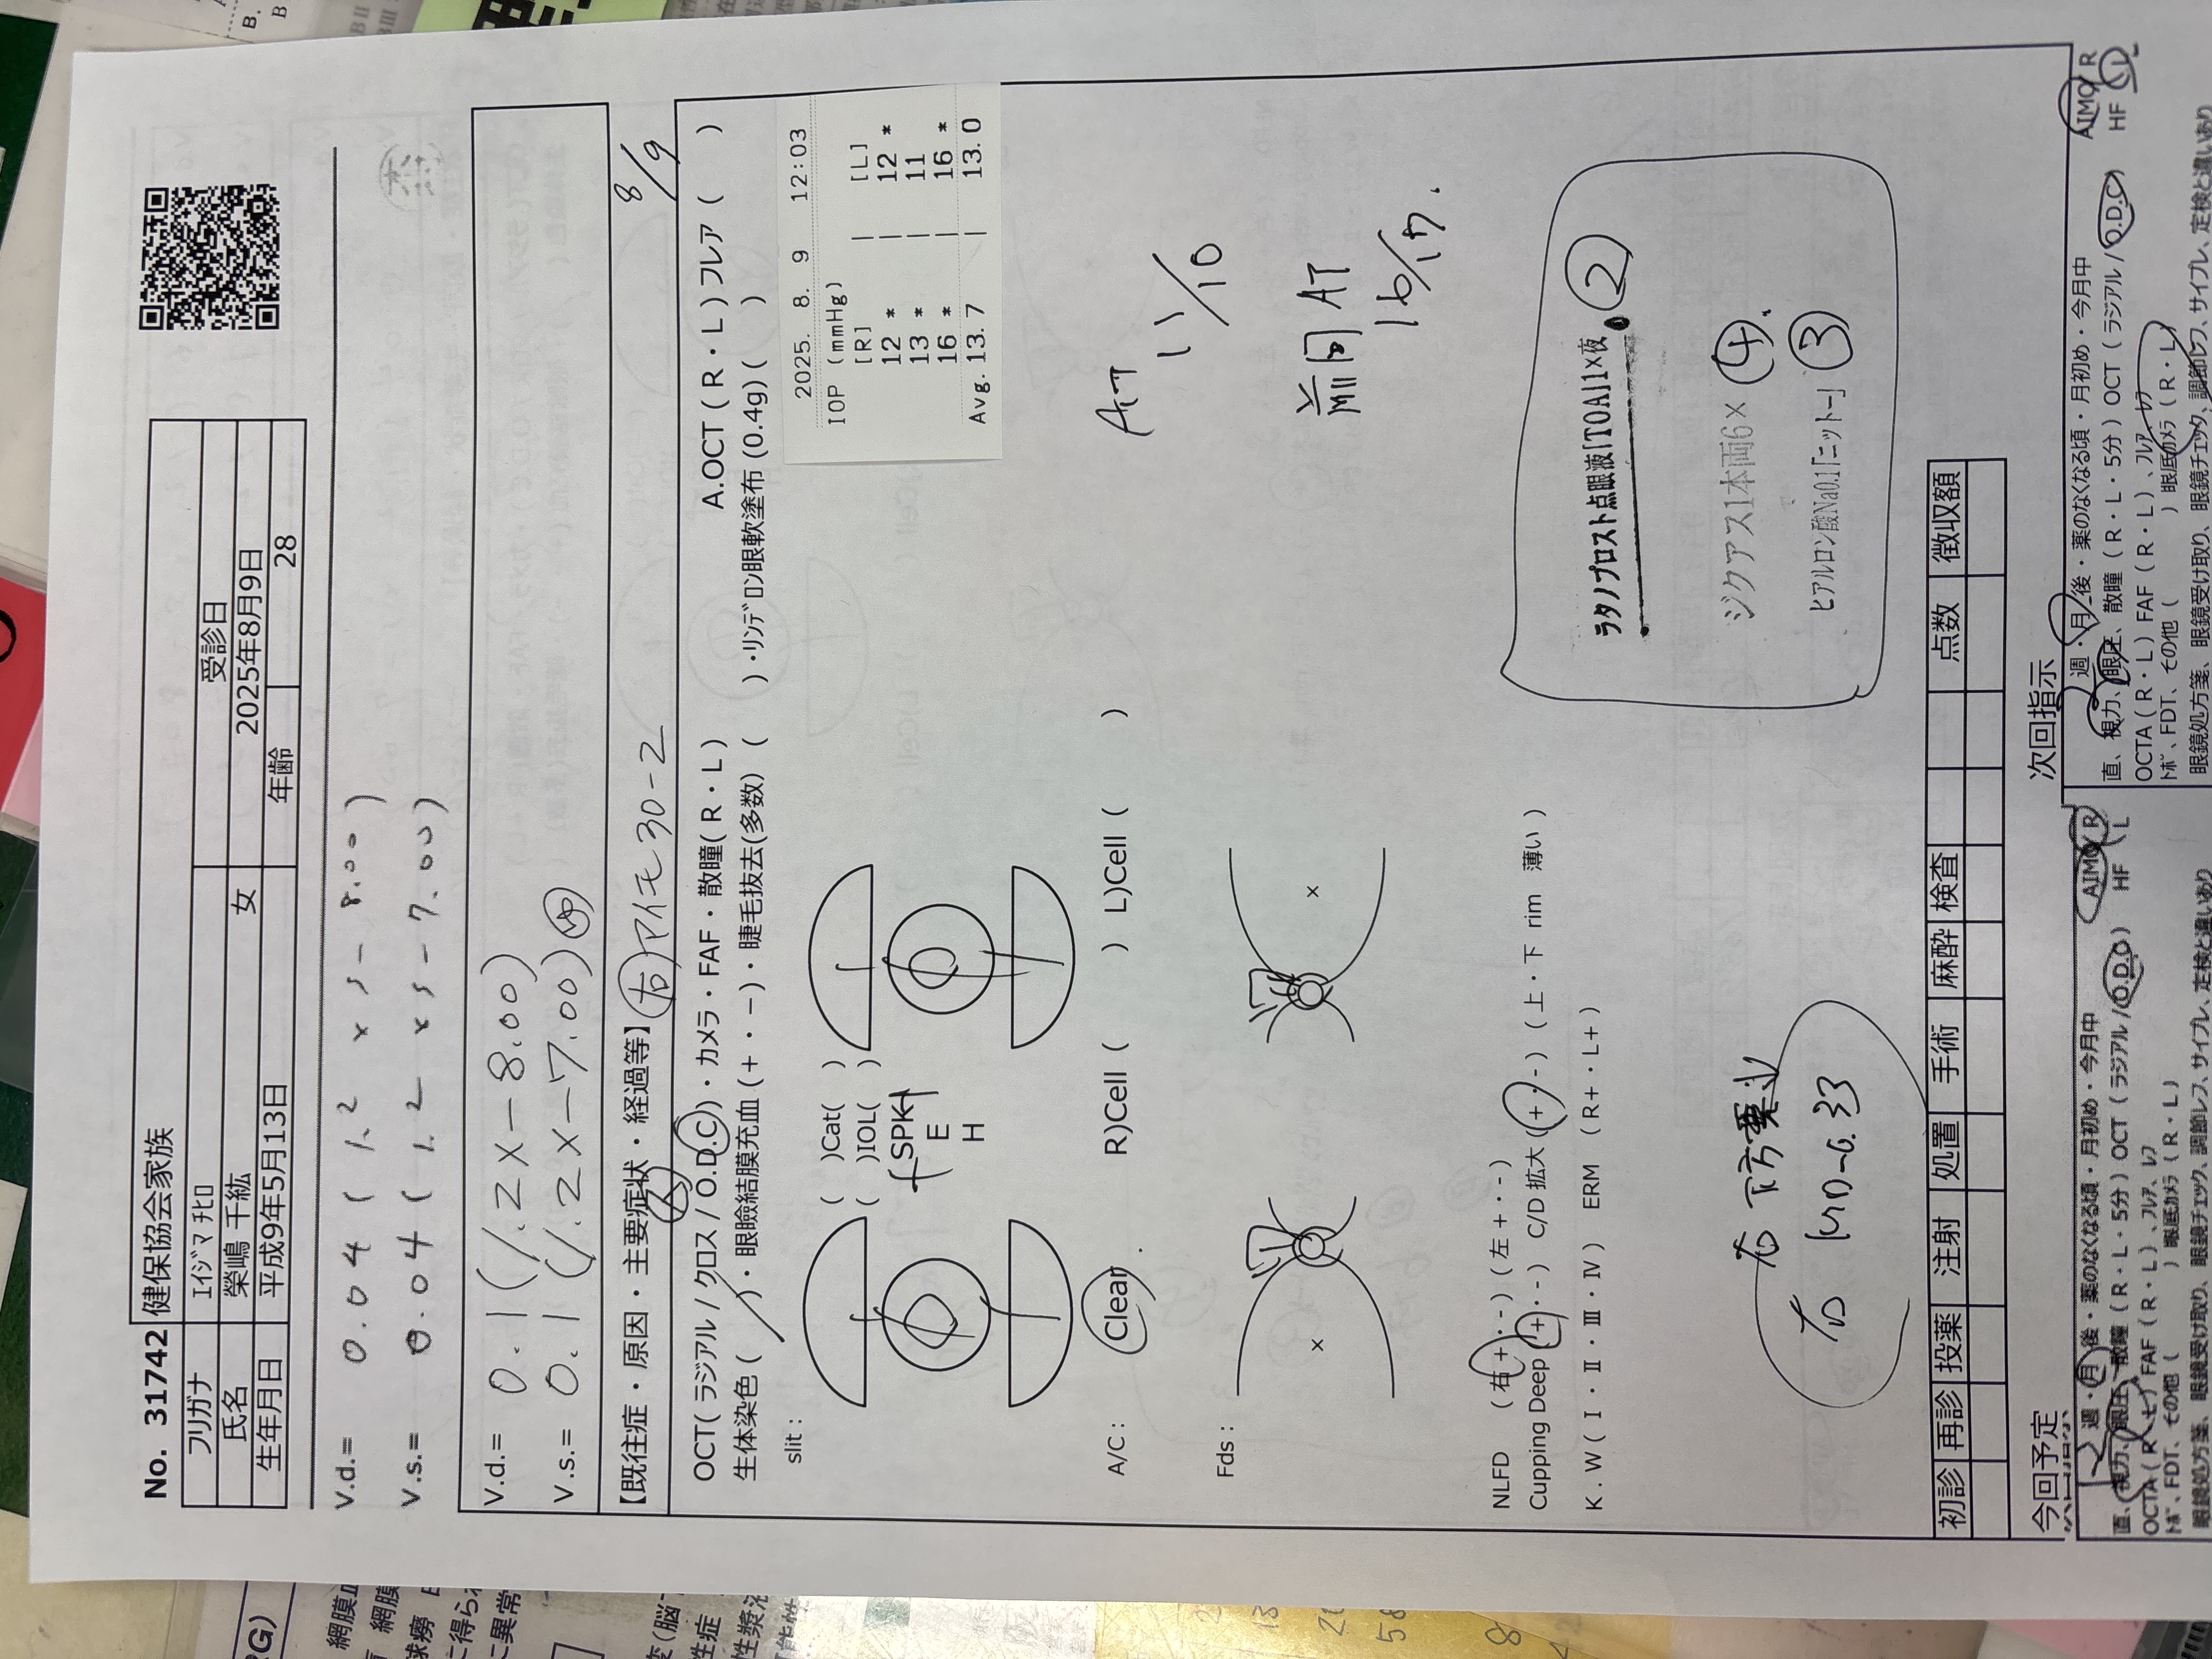 No. 31742 健保協会家族
フリガナ ｴｲｼﾞﾏ ﾁﾋﾛ 受診日
氏名 榮嶋 千紘 女 2025年8月9日
生年月日 平成9年5月13日 年齢 28
V.d.= 0.04 ( 1.2 x s - 8.00 )
V.s.= 0.04 ( 1.2 x s - 7.00 )
V.d.= 0.1 (1.2x-8.00)
V.s.= 0.1 (1.2x-7.00)
【既往症・原因・主要症状・経過等】 右 アイモ 30-2 8/9
OCT( ラジアル / クロス / O.D.C )・カメラ・FAF・散瞳( R・L ) A.OCT ( R・L ) フレア ( )
生体染色 ( )・眼瞼結膜充血 (+・-)・睫毛抜去(多数) ( )・ﾘﾝﾃﾞﾛﾝ眼軟塗布 (0.4g) ( )
slit :
( )Cat( )
( )IOL( )
SPK
E
H
2025. 8. 9 12:03
IOP (mmHg)
[R] | [L]
12 * | 12 *
13 * | 11
16 * | 16 *
Avg. 13.7 | 13.0
A/C : Clear R)Cell ( ) L)Cell ( )
AT
11/10
Fds :
前回 AT
16/17.
NLFD (右 +・-) (左 +・-)
Cupping Deep ( +・-) C/D 拡大 ( +・-) (上・下 rim 薄い)
K.W ( Ⅰ・Ⅱ・Ⅲ・Ⅳ) ERM (R+・L+)
ラタノプロスト点眼液「TOA」1×夜 ②
ジクアス1本両6× ④
ヒアルロン酸Na0.1「ニットー」 ③
右 下方 ↓
右 MD-0.33
初診 再診 投薬 注射 処置 手術 麻酔 検査 点数 徴収額
今回予定 次回指示
週・月 後・薬のなくなる頃・月初め・今月中 AIMO R
直、視力、眼圧、散瞳 (R・L・5分) OCT (ラジアル / O.D.C) HF L
OCTA (R・L) FAF (R・L)、ﾌﾚｱ、ﾚﾌ
ﾄﾎﾟ、FDT、その他 ( ) 眼底ｶﾒﾗ (R・L)
眼鏡処方箋、眼鏡受け取り、眼鏡チェック、調節レフ、サイプレ、定検と違いあり
週・月 後・薬のなくなる頃・月初め・今月中 AIMO R
直、視力、眼圧、散瞳 (R・L・5分) OCT (ラジアル / O.D.C) HF L
OCTA (R・L) FAF (R・L)、ﾌﾚｱ、ﾚﾌ
ﾄﾎﾟ、FDT、その他 ( ) 眼底ｶﾒﾗ (R・L)
眼鏡処方箋、眼鏡受け取り、眼鏡チェック、調節レフ、サイプレ、定検と違いあり